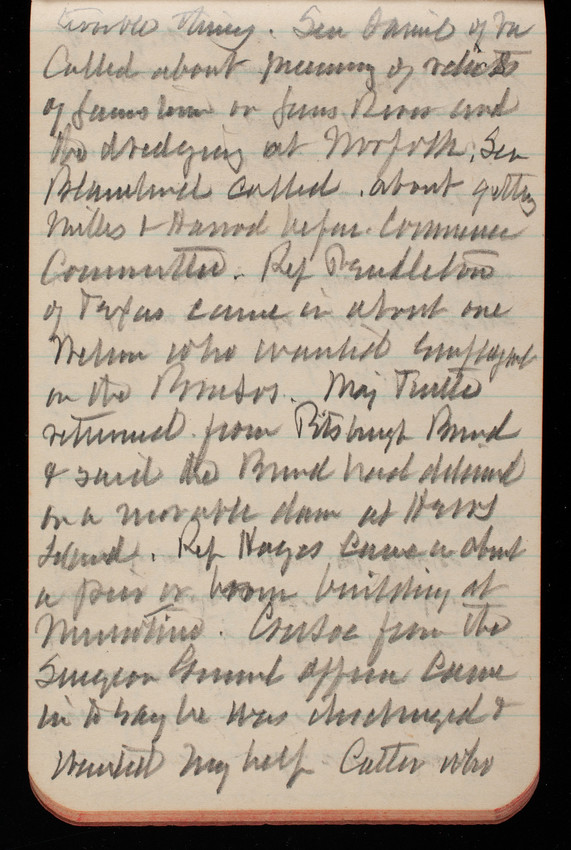 trouble thing. Sen Daniel of Va
Called about of
of Jamestown on James River and
the dredging at Norfolk, Sen
Blanchard called. about getting
Mills & Harrod before Commerce
Committee. Rep Pendleton
of Texas came in about one
Nelson who wanted employment
on the Brazos. Maj Turtle
returned from Pittsburgh Board
& said the Board had decided
on a movable dam at Herrs
Island. Rep Hayes came in about
a pier or boom building at
Muscatine. from the
Surgeon General office came
in to say he was discharged &
wanted my help. Cutter who